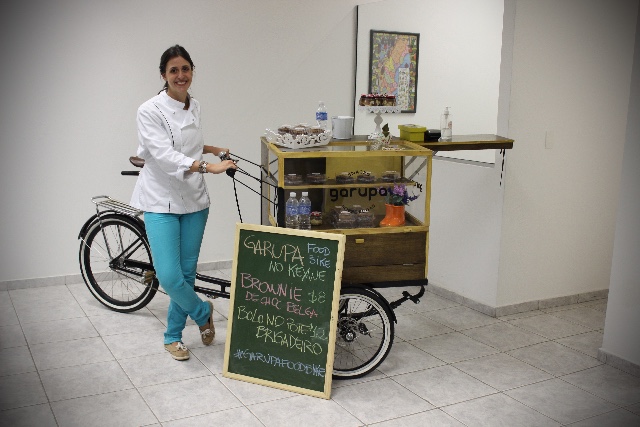 garupa
GARUPA FOOD BIKE
NO KEXUE
BROWNIE $8
DE CHOC BELGA
BOLO NO POTE
BRIGADEIRO
#GARUPAFOODBIKE